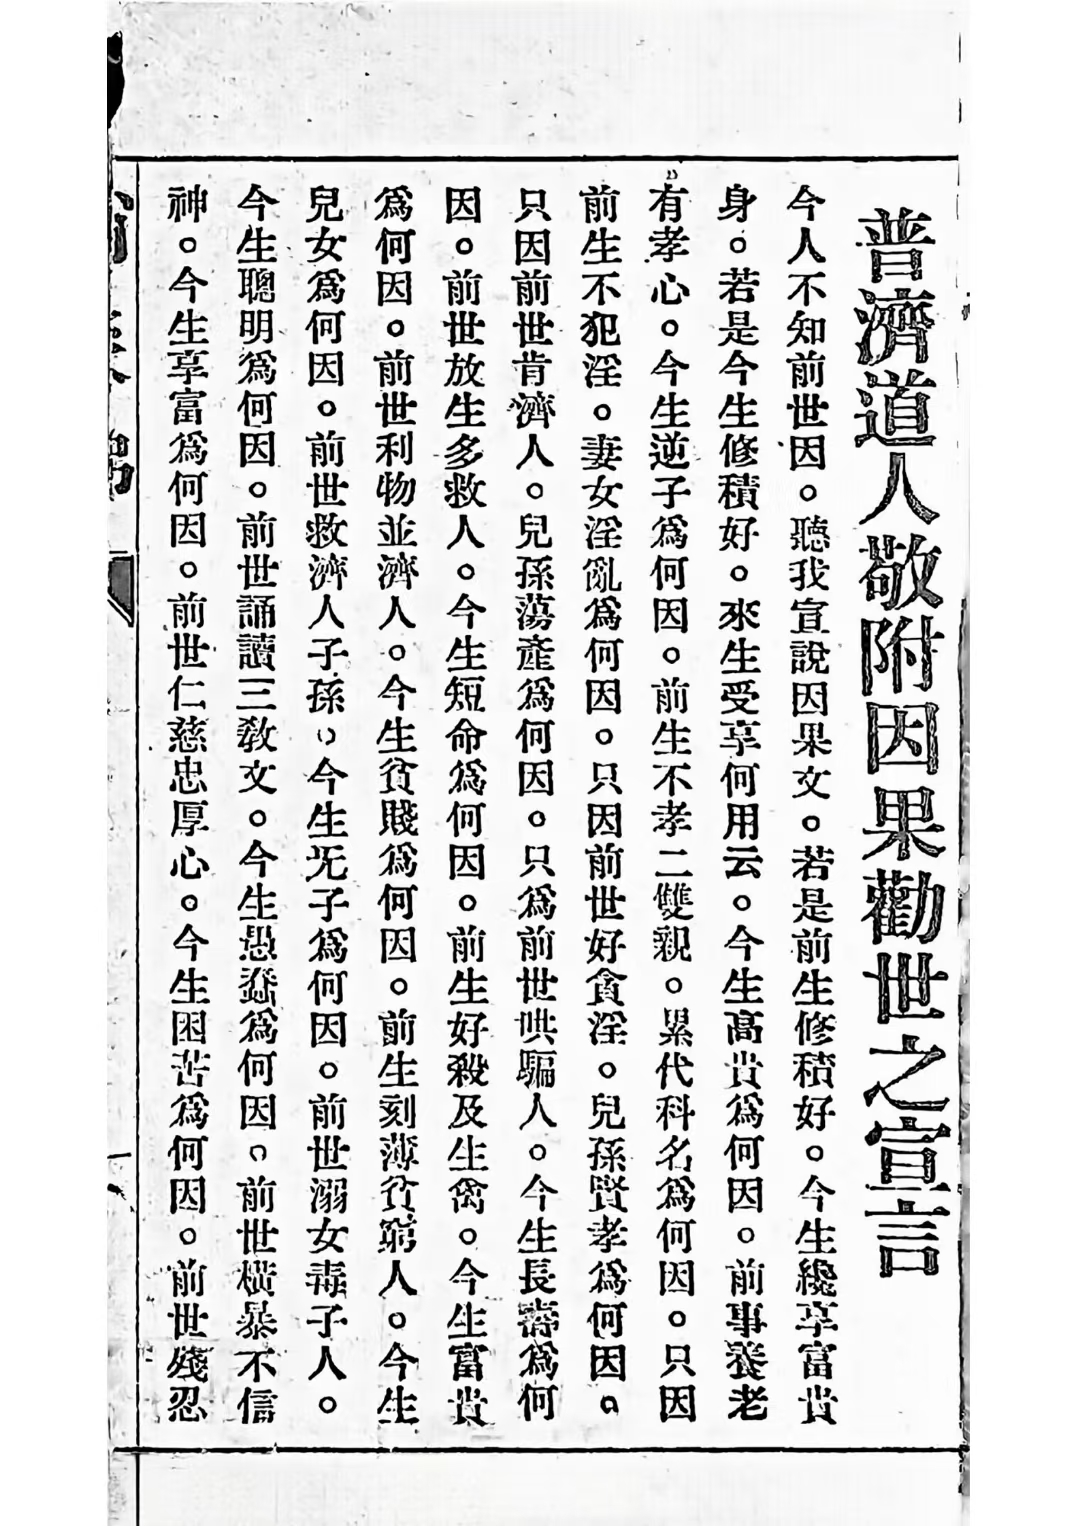 普濟道人敬附因果勸世之宣言
今人不知前世因。聽我宣說因果文。若是前生修積好。今生纔享富貴
身。若是今生修積好。來生受享何用云。今生高貴爲何因。前事養老
有孝心。今生逆子爲何因。前生不孝二雙親。累代科名爲何因。只因
前生不犯淫。妻女淫亂爲何因。只因前世好貪淫。兒孫賢孝爲何因。
只因前世肯濟人。兒孫蕩產爲何因。只爲前世哄騙人。今生長壽爲何
因。前世放生多救人。今生短命爲何因。前生好殺及生禽。今生富貴
爲何因。前世利物並濟人。今生貧賤爲何因。前生刻薄貧窮人。今生
兒女爲何因。前世救濟人子孫。今生旡子爲何因。前世溺女毒子人。
今生聰明爲何因。前世誦讀三敎文。今生愚蠢爲何因。前世橫暴不信
神。今生享富爲何因。前世仁慈忠厚心。今生困苦爲何因。前世殘忍